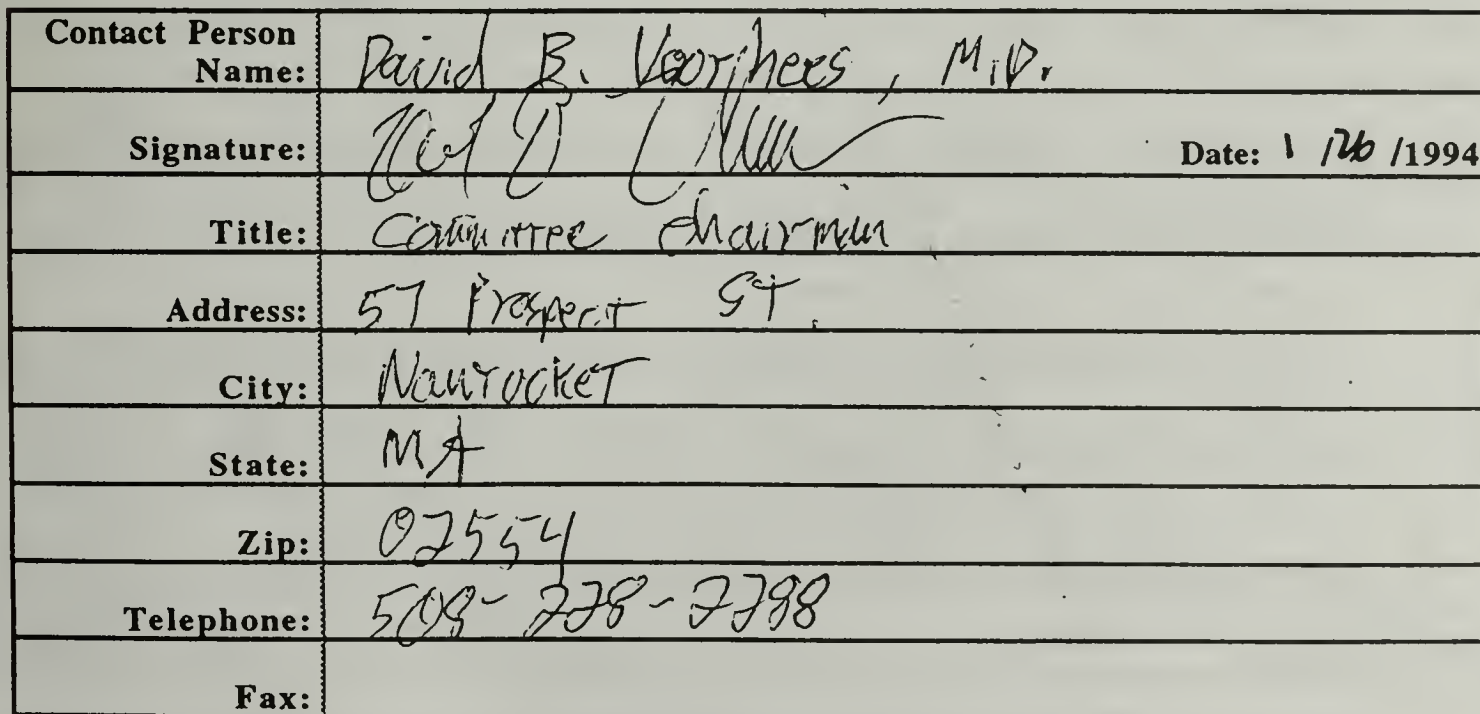 Contact Person
Name: David B. Voorhees, M.D.
Signature: Date: 1 /26 /1994
Title: Committee Chairman
Address: 57 Prospect ST.
City: Nantucket
State: MA
Zip: 02554
Telephone: 508-
Fax: